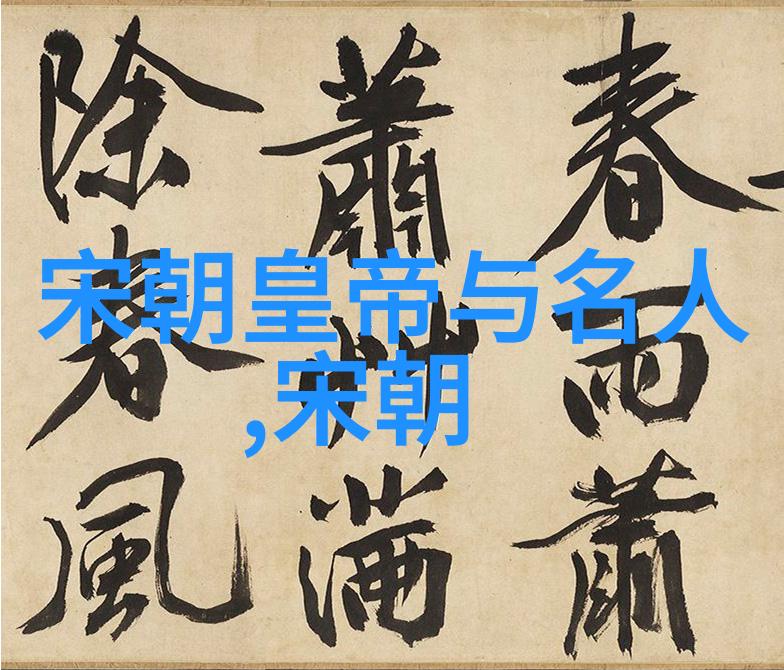 春雨蕭
蕭艸滿
除春風
宋朝皇帝与名人
,宋朝